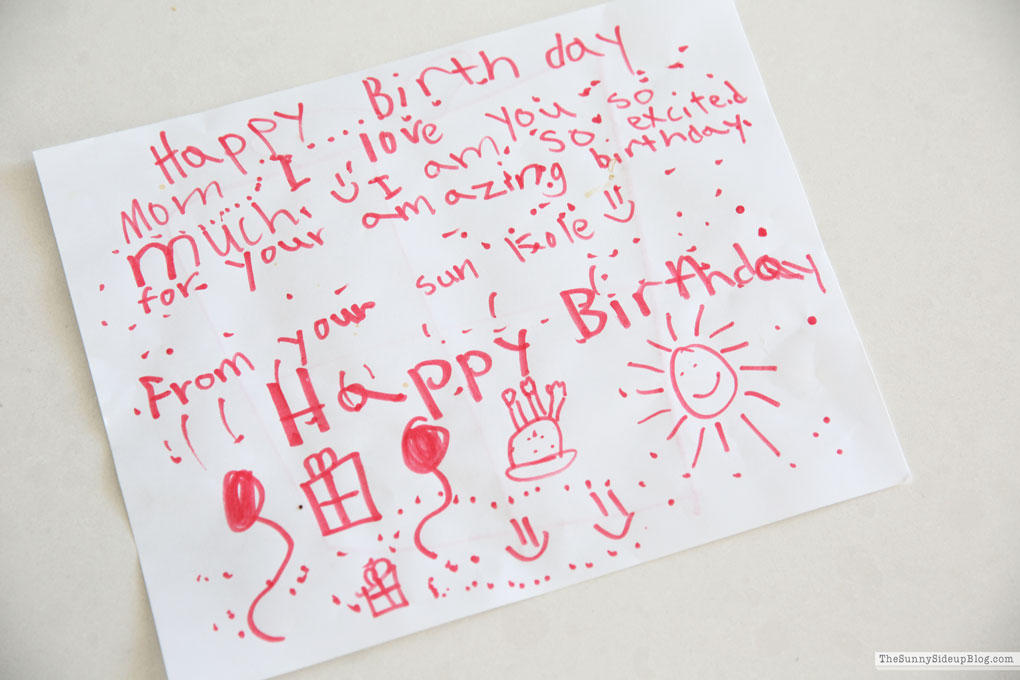 Happy Birth day
Mom... I... love you so
much. I am so excited
for your amazing birthday.
From your sun Kole
Happy Birthday
TheSunnySideupBlog.com